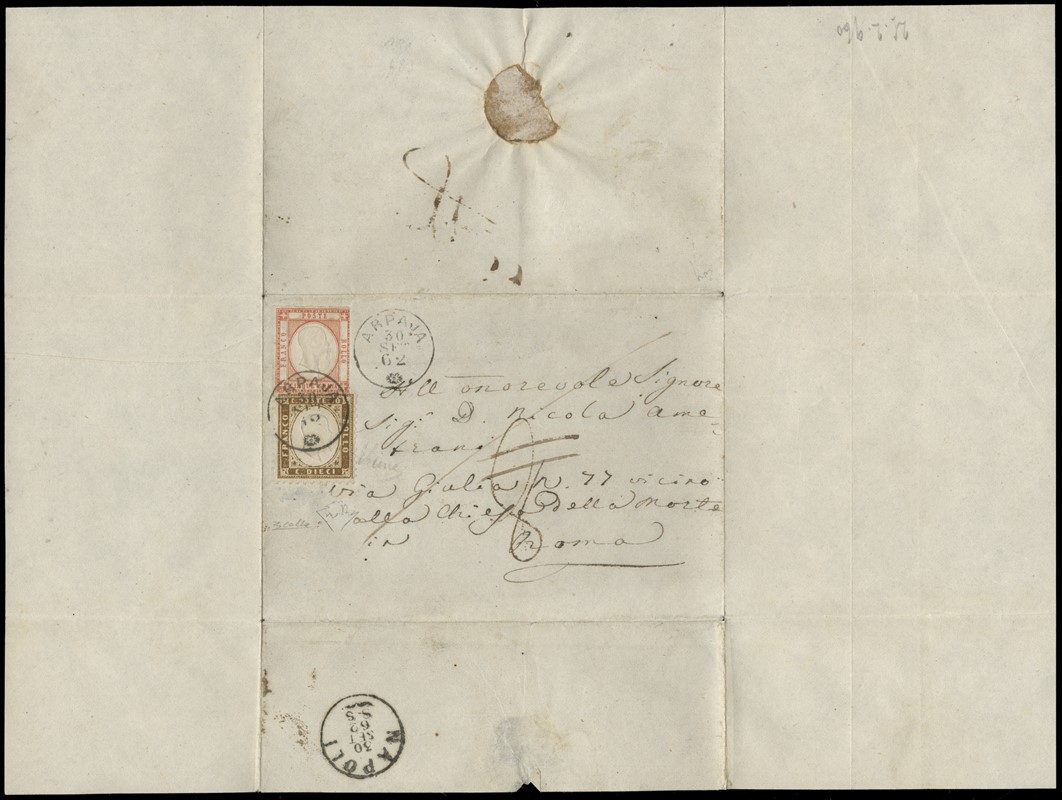 ARPAJA
30
SET
62
FRANCO
POSTE
BOLLO
ARPAJA
FRANCO
BOLLO
C. DIECI
All'onorevole Signore
Sig.r D. Nicola Ama-
trani
via Giulia N. 77 vicino
alla Chiesa della Morte
in Roma
8
NAPOLI
30
SET
62
5 S